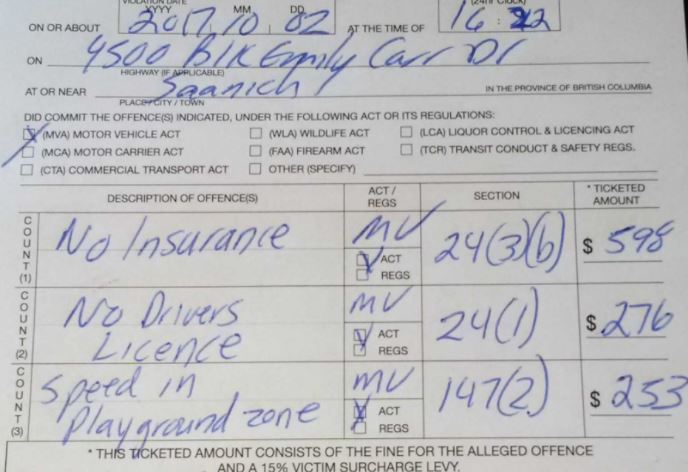 VIOLATION DATE
YYYY MM DD (24hr Clock)
ON OR ABOUT 2017 10 02 AT THE TIME OF 16:22
ON 4500 Blk Emily Carr Dr
HIGHWAY (IF APPLICABLE)
AT OR NEAR Saanich IN THE PROVINCE OF BRITISH COLUMBIA
PLACE/CITY / TOWN
DID COMMIT THE OFFENCE(S) INDICATED, UNDER THE FOLLOWING ACT OR ITS REGULATIONS:
(MVA) MOTOR VEHICLE ACT (WLA) WILDLIFE ACT (LCA) LIQUOR CONTROL & LICENCING ACT
(MCA) MOTOR CARRIER ACT (FAA) FIREARM ACT (TCR) TRANSIT CONDUCT & SAFETY REGS.
(CTA) COMMERCIAL TRANSPORT ACT OTHER (SPECIFY)
DESCRIPTION OF OFFENCE(S) ACT / REGS SECTION * TICKETED AMOUNT
COUNT (1) No Insurance MV 24(3)(b) $ 598
ACT
REGS
COUNT (2) No Drivers MV 24(1) $ 276
Licence ACT
REGS
COUNT (3) Speed in MV 147(2) $ 253
Playground zone ACT
REGS
* THIS TICKETED AMOUNT CONSISTS OF THE FINE FOR THE ALLEGED OFFENCE
AND A 15% VICTIM SURCHARGE LEVY.